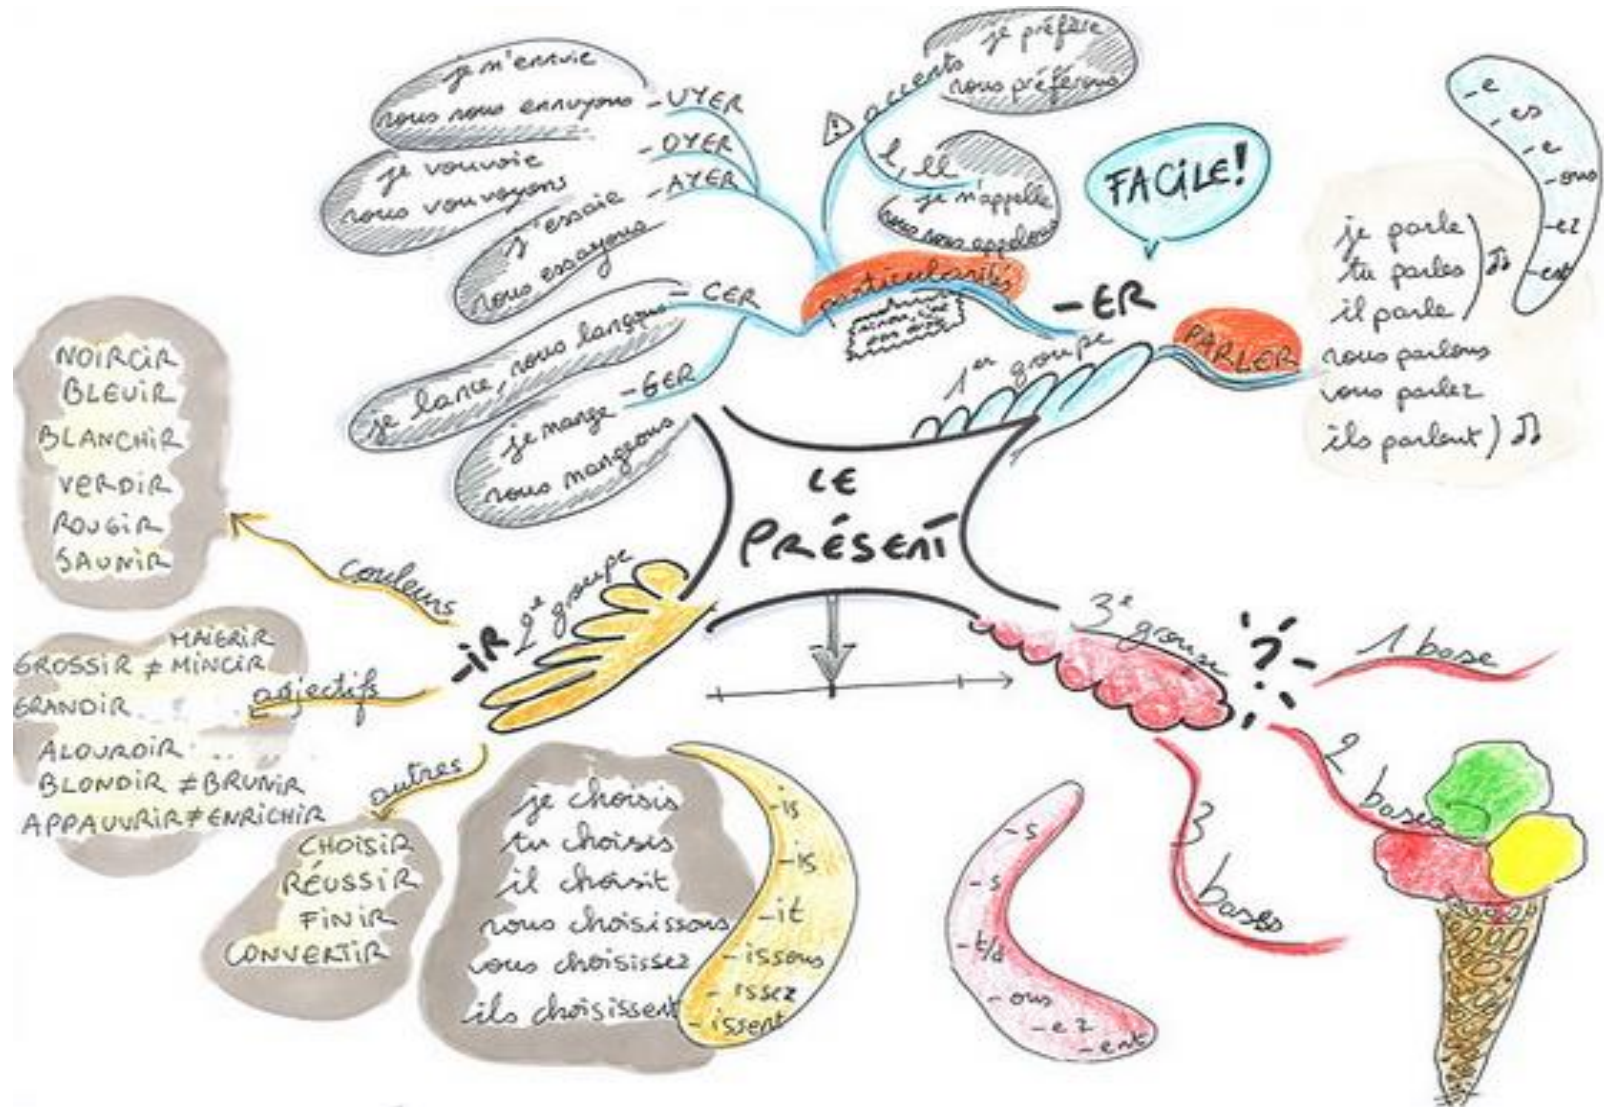 LE
PRÉSENT
1er groupe
-ER
FACILE!
PARLER
je parle
tu parles
il parle
nous parlons
vous parlez
ils parlent
-e
-es
-e
-ons
-ez
-ent
particularités
accents
je préfère
nous préférons
l, ll
je m'appelle
nous nous appelons
-UYER
je m'ennuie
nous nous ennuyons
-OYER
je vouvoie
nous vouvoyons
-AYER
j'essaie
nous essayons
-CER
je lance, nous lançons
-GER
je mange
nous mangeons
2e groupe
-IR
couleurs
NOIRCIR
BLEUIR
BLANCHIR
VERDIR
ROUGIR
adjectifs
MAIGRIR
GROSSIR ≠ MINCIR
GRANDIR
ALOURDIR
BLONDIR ≠ BRUNIR
APPAUVRIR ≠ ENRICHIR
autres
CHOISIR
RÉUSSIR
FINIR
CONVERTIR
je choisis
tu choisis
il choisit
nous choisissons
vous choisissez
ils choisissent
-is
-is
-it
-issons
-issez
-issent
3e groupe
?
1 base
2 bases
3 bases
-s
-s
-t/d
-ons
-ez
-ent